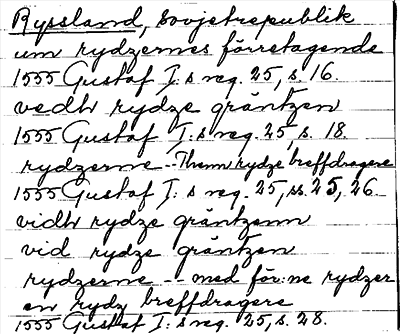 Ryssland, Sovjetrepublik
um rydzernes förretagende
1555 Gustaf I:s reg. 25, s. 16.
vedh rydze gräntzen
1555 Gustaf I:s reg. 25, s. 18.
rydzerne -- Themn rydze breffdragere
1555 Gustaf I:s reg. 25, ss. 25, 26.
vidh rydze gräntzenn
vid rydze gräntzen
rydzerne -- med för:ne rydzer
en rydz breffdragere
1555 Gustaf I:s reg. 25, s. 28.